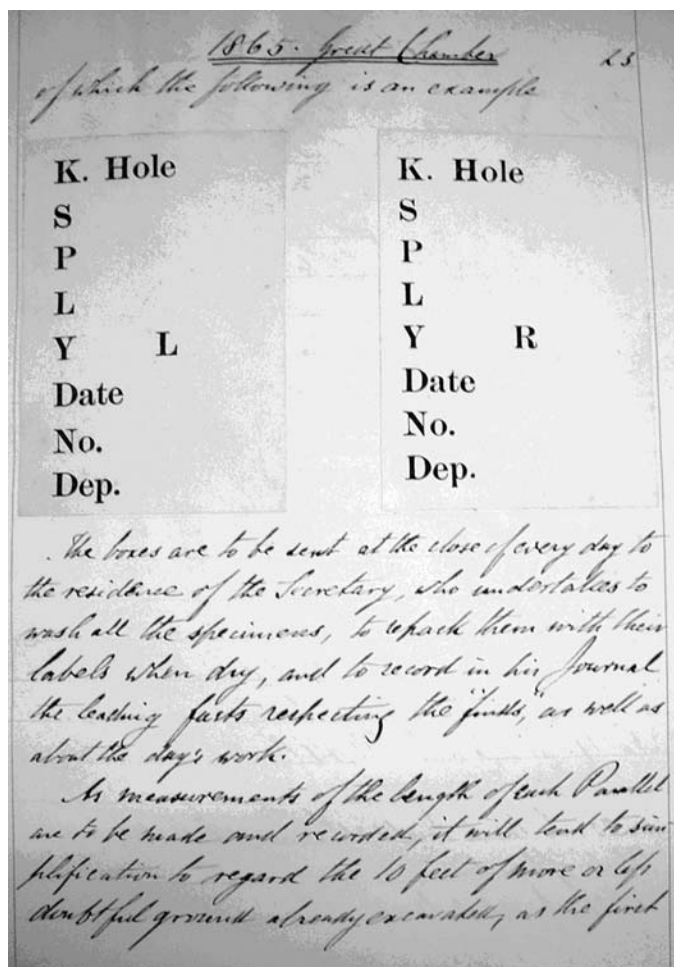 1865. Great Chamber 23
of which the following is an example
K. Hole
S
P
L
Y L
Date
No.
Dep.
K. Hole
S
P
L
Y R
Date
No.
Dep.
The boxes are to be sent at the close of every day to
the residence of the Secretary, who undertakes to
wash all the specimens, to repack them with their
labels when dry, and to record in his Journal
the leading facts respecting the "finds," as well as
about the day's work.
As measurements of the length of each Parallel
are to be made and recorded, it will tend to sim-
plification to regard the 10 feet of more or less
doubtful ground already excavated, as the first